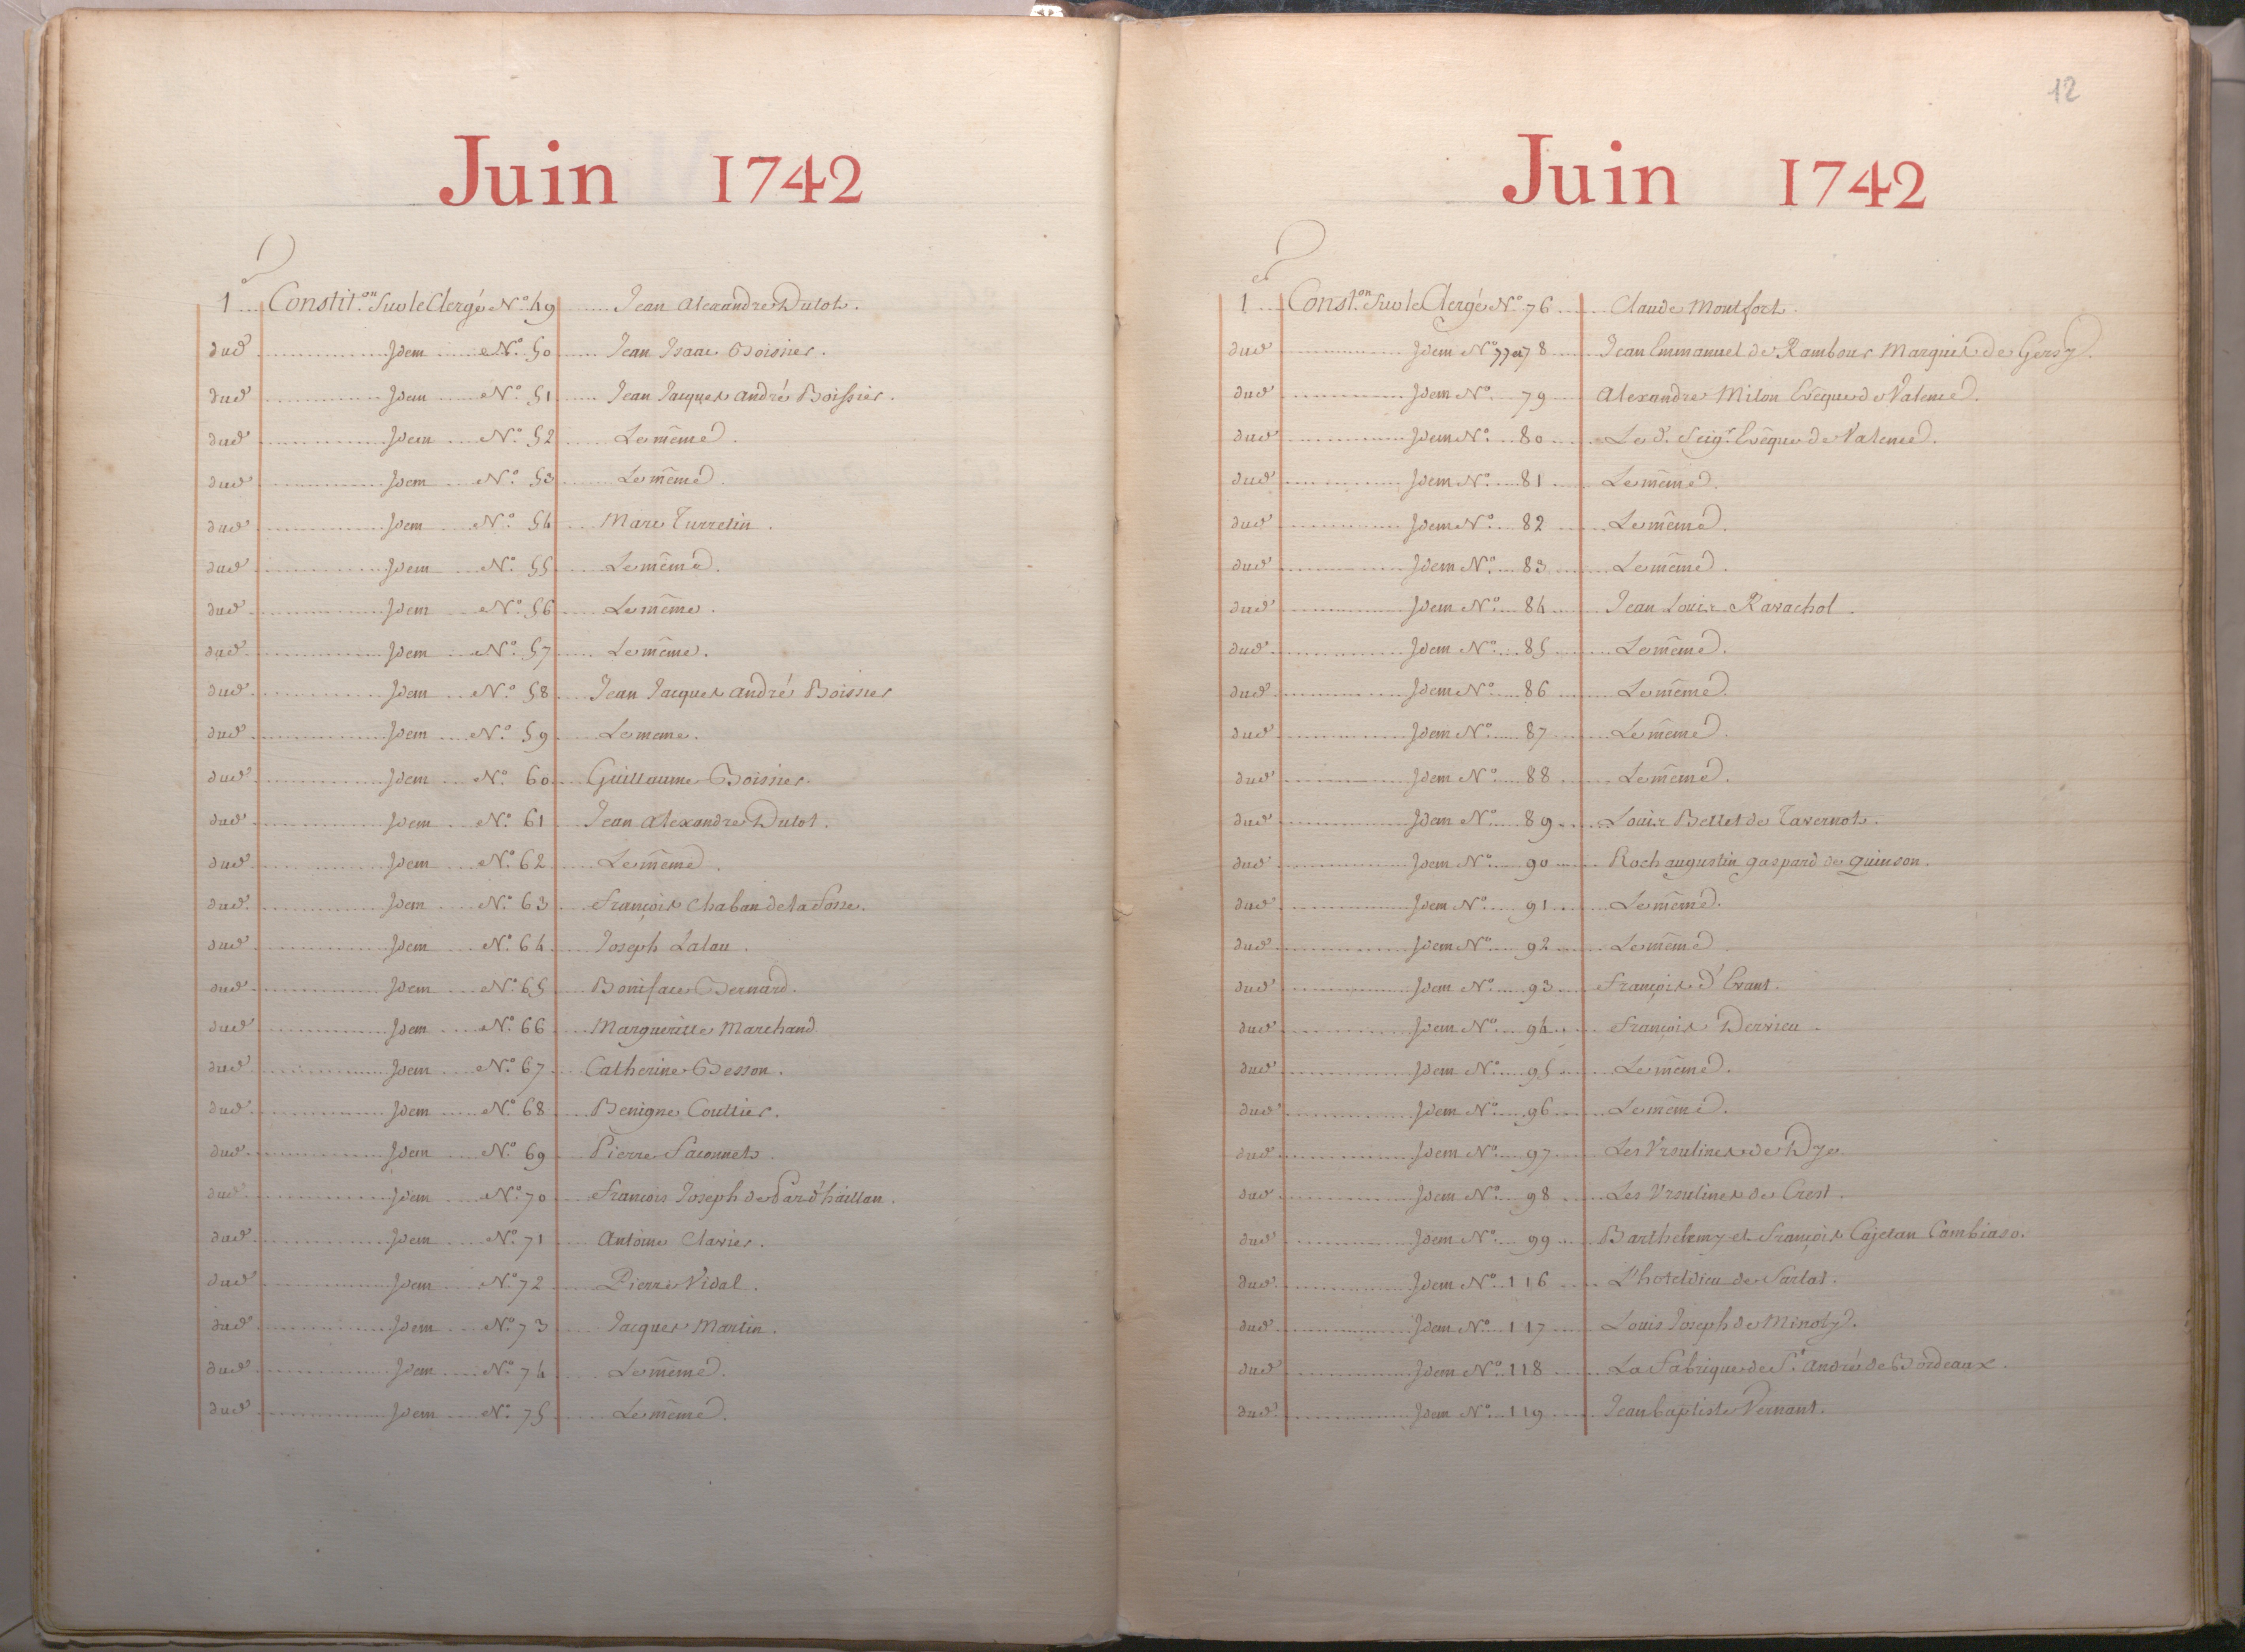 Juin 1742
1er Constit.on Sur le Clergé N.º 49 Jean Alexandre Dutot.
dud. Idem N.º 50 Jean Isaac Boissier.
dud. Idem N.º 51 Jean Jacques André Boissier.
dud. Idem N.º 52 Le même.
dud. Idem N.º 53 Le même.
dud. Idem N.º 54 Marc Turretin.
dud. Idem N.º 55 Le même.
dud. Idem N.º 56 Le même.
dud. Idem N.º 57 Le même.
dud. Idem N.º 58 Jean Jacques André Boissier
dud. Idem N.º 59 Le meme.
dud. Idem N.º 60 Guillaume Boissier.
dud. Idem N.º 61 Jean Alexandre Dutot.
dud. Idem N.º 62 Le même.
dud. Idem N.º 63 François Chaban de la Fosse.
dud. Idem N.º 64 Joseph Lalau.
dud. Idem N.º 65 Boniface Bernard.
dud. Idem N.º 66 Margueritte Marchand.
dud. Idem N.º 67 Catherine Besson.
dud. Idem N.º 68 Benigne Coullier.
dud. Idem N.º 69 Pierre Faconnet.
dud. Idem N.º 70 François Joseph de Pard'haillan.
dud. Idem N.º 71 Antoine Clavier.
dud. Idem N.º 72 Pierre Vidal.
dud. Idem N.º 73 Jacques Martin.
dud. Idem N.º 74 Le même.
dud. Idem N.º 75 Le même.
12
Juin 1742
1er Const.on Sur le Clergé N.º 76 Claude Montfort.
dud. Idem N.º 77 et 78 Jean Emmanuel de Rambour Marquis de Gersy.
dud. Idem N.º 79 Alexandre Milon Evêque de Valence.
dud. Idem N.º 80 Led. Seigr. Evêque de Valence.
dud. Idem N.º 81 Le même.
dud. Idem N.º 82 Le même.
dud. Idem N.º 83 Le même.
dud. Idem N.º 84 Jean Louis Ravachol.
dud. Idem N.º 85 Le même.
dud. Idem N.º 86 Le même.
dud. Idem N.º 87 Le même.
dud. Idem N.º 88 Le même.
dud. Idem N.º 89 Louis Bellet de Tavernot.
dud. Idem N.º 90 Roch augustin gaspard de quinson.
dud. Idem N.º 91 Le même.
dud. Idem N.º 92 Le même.
dud. Idem N.º 93 François d'Evant.
dud. Idem N.º 94 François Dervieu.
dud. Idem N.º 95 Le même.
dud. Idem N.º 96 Le même.
dud. Idem N.º 97 Les Vrsulines de Dye
dud. Idem N.º 98 Les Vrsulines de Crest.
dud. Idem N.º 99 Barthelemy et François Cajetan Cambiaso.
dud. Idem N.º 116 L'hoteldieu de Sarlat.
dud. Idem N.º 117 Louis Joseph de Minoty.
dud. Idem N.º 118 La Fabrique de St. André de Bordeaux.
dud. Idem N.º 119 Jean baptiste Vernant.